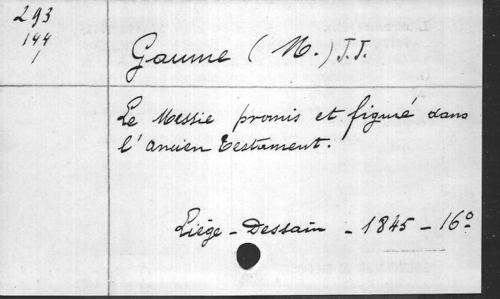 293
144
1
Gaume (M.) J.J.
Le Messie promis et figuré dans
l'ancien Testament.
Liége - Dessain - 1845 - 16º